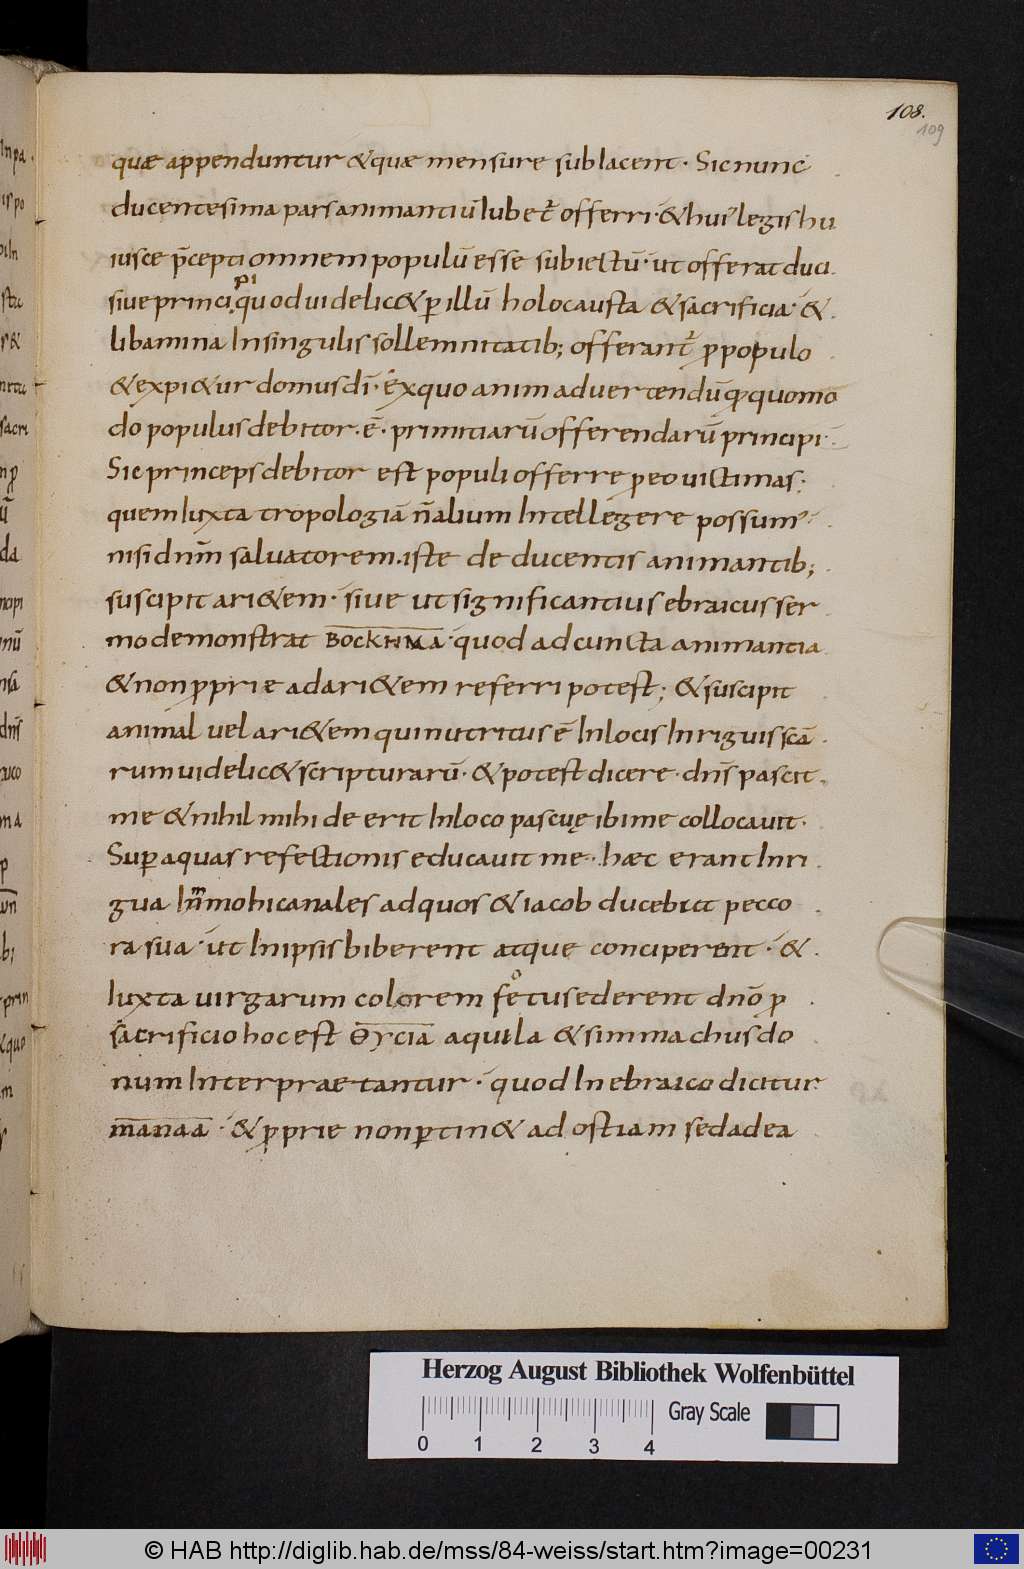 108.
109
quæ appenduntur & quæ mensure sublacent · Sic nunc
ducentesima pars animantiū Iubet̄ offerri · & hui' legis hu
iusce p̄cepti omnem populū esse subiectū · ut offerat duci
siue princi pi quod uidelic& ꝑ illū holocausta & sacrificia · &
libamina In singulis sollemnitatib; offerant̄ ꝓ populo
& expi&ur domus dī · éxquo animaduertendū qđ quomo
do populus debitor · ē · primitiarū offerendarū principi ·
Sic princeps debitor est populi offerre ꝓ eo uictimas ;
quem Iuxta tropologiā n̄ alium Intellegere possum'
nisi dn̄m saluatorem · iste de ducentis animantib;
suscipit ari&em · siue ut significantius ebraicus ser
mo demonstrat BOCKHMA · quod ad cuncta animantia
& non ꝓprie ad ari&em referri potest ; & suscipit
animal uel ari&em qui nutritus ē In locis Inriguis scā
rum uidelic& scripturarū · & potest dicere · dn̄s pascit
me & nihil mihi deerit In loco pascuę ibi me collocauit ·
Suꝑ aquas refectionis educauit me · hæc erant Inri
gua In mohi canales ad quos & iacob ducebat pecco
ra sua · ut In ipsis biberent atque conciperent · &
Iuxta uirgarum colorem fetus ederent dn̄o ꝓ
sacrificio hoc est ΘΥCΙΑ aquila & simmachus do
num Interpraetantur · quod In ebraico dicitur
manaa · & ꝓprie non ꝑtin& ad ostiam sed ad ea
Herzog August Bibliothek Wolfenbüttel
0 1 2 3 4 Gray Scale
© HAB http://diglib.hab.de/mss/84-weiss/start.htm?image=00231